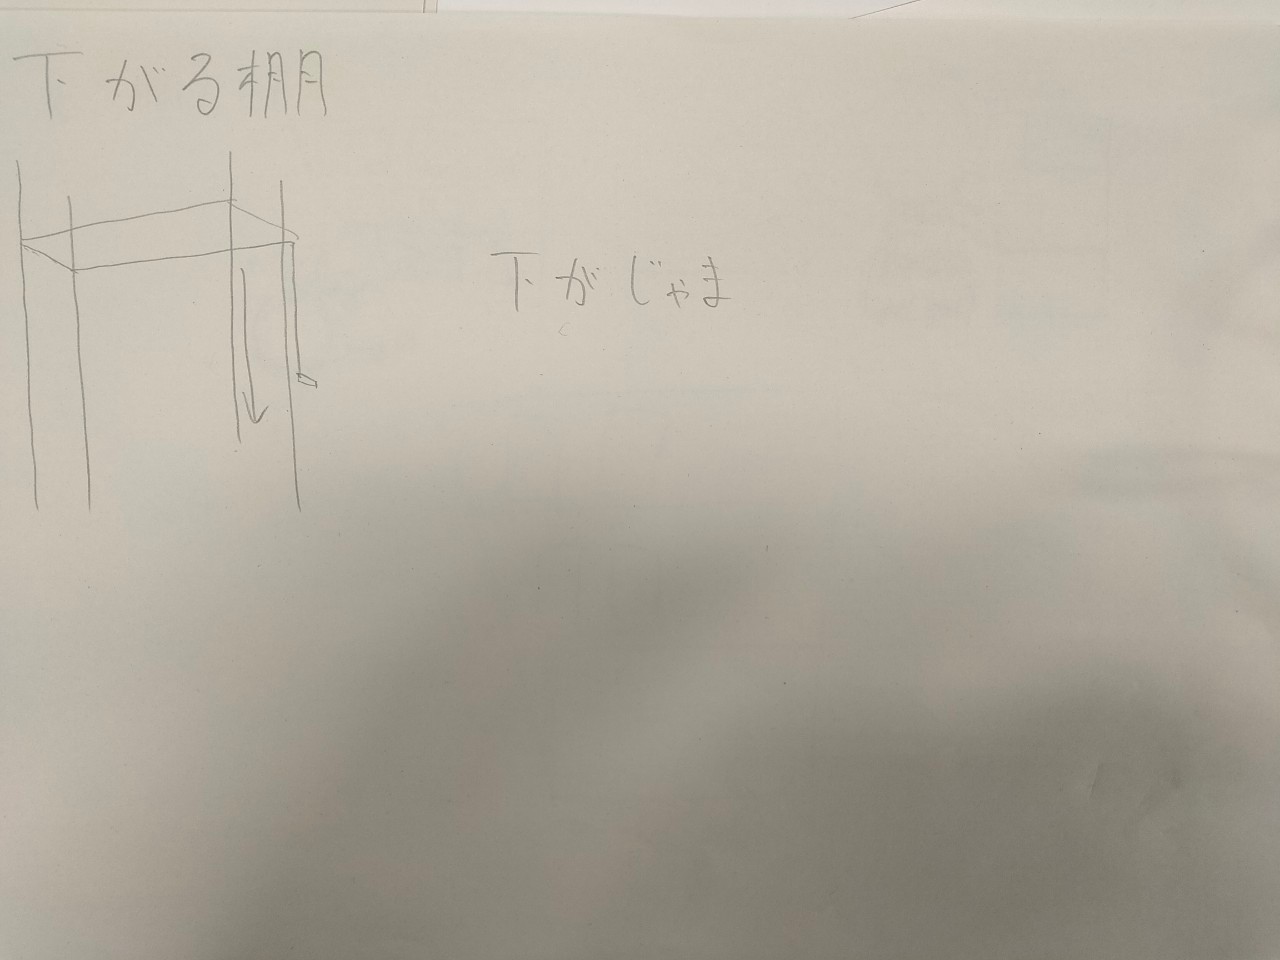 下がる棚
下がじゃま